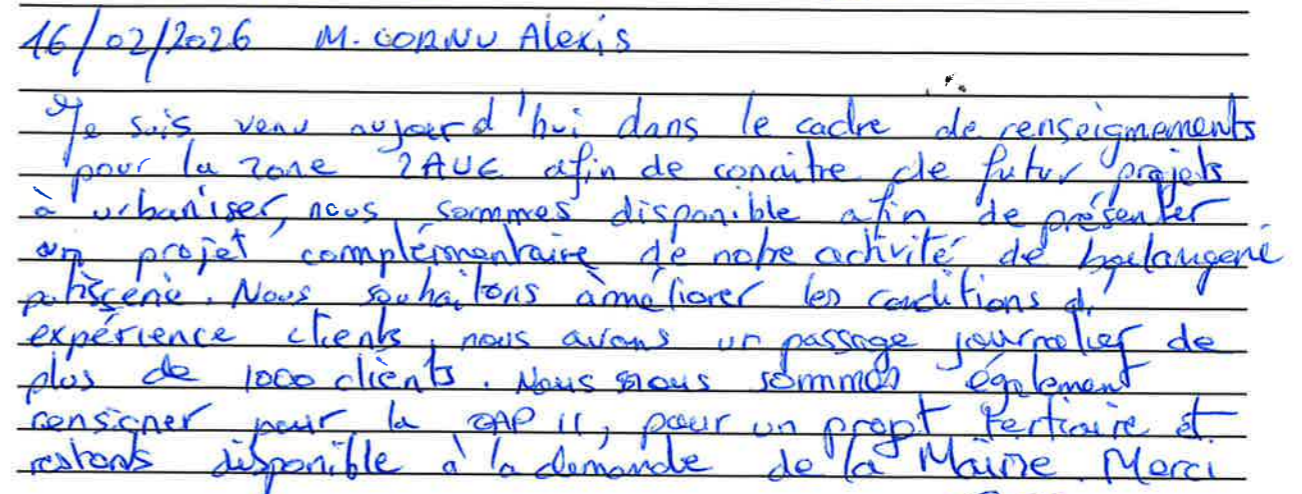 16/02/2026 M. CORNU Alexis
Je suis venu aujourd'hui dans le cadre de renseignements
pour la zone 2AUE afin de conaitre de futur projets
à urbaniser, nous sommes disponible afin de présenter
un projet complémentaire de notre activité de boulangerie
patisserie. Nous souhaitons améliorer les conditions d'
expérience clients, nous avons un passage journalier de
plus de 1000 clients. Nous nous sommes également
renseigner pour la OAP 11, pour un projet tertiaire et
restons disponible à la demande de la Mairie. Merci